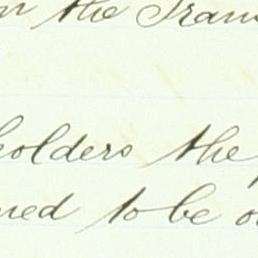 the Tran
holders the
ned to be o